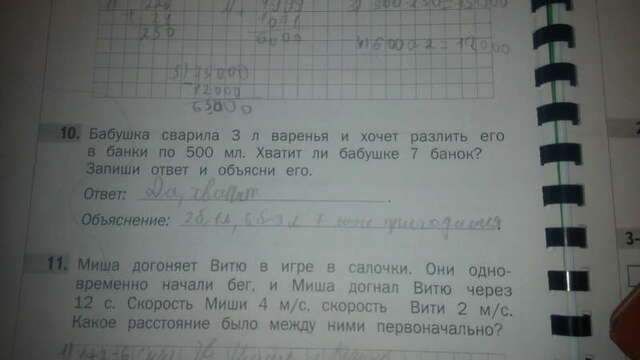 230
6000
3) 300·250=75000
4) 6000·2=12000
5) 75000
12000
63000
10. Бабушка сварила 3 л варенья и хочет разлить его
в банки по 500 мл. Хватит ли бабушке 7 банок?
Запиши ответ и объясни его.
Ответ: Да, хватит.
Объяснение: 2б-1л, 6б-3л 1 не пригодится.
11. Миша догоняет Витю в игре в салочки. Они одно-
временно начали бег, и Миша догнал Витю через
12 с. Скорость Миши 4 м/с, скорость Вити 2 м/с.
Какое расстояние было между ними первоначально?
3-